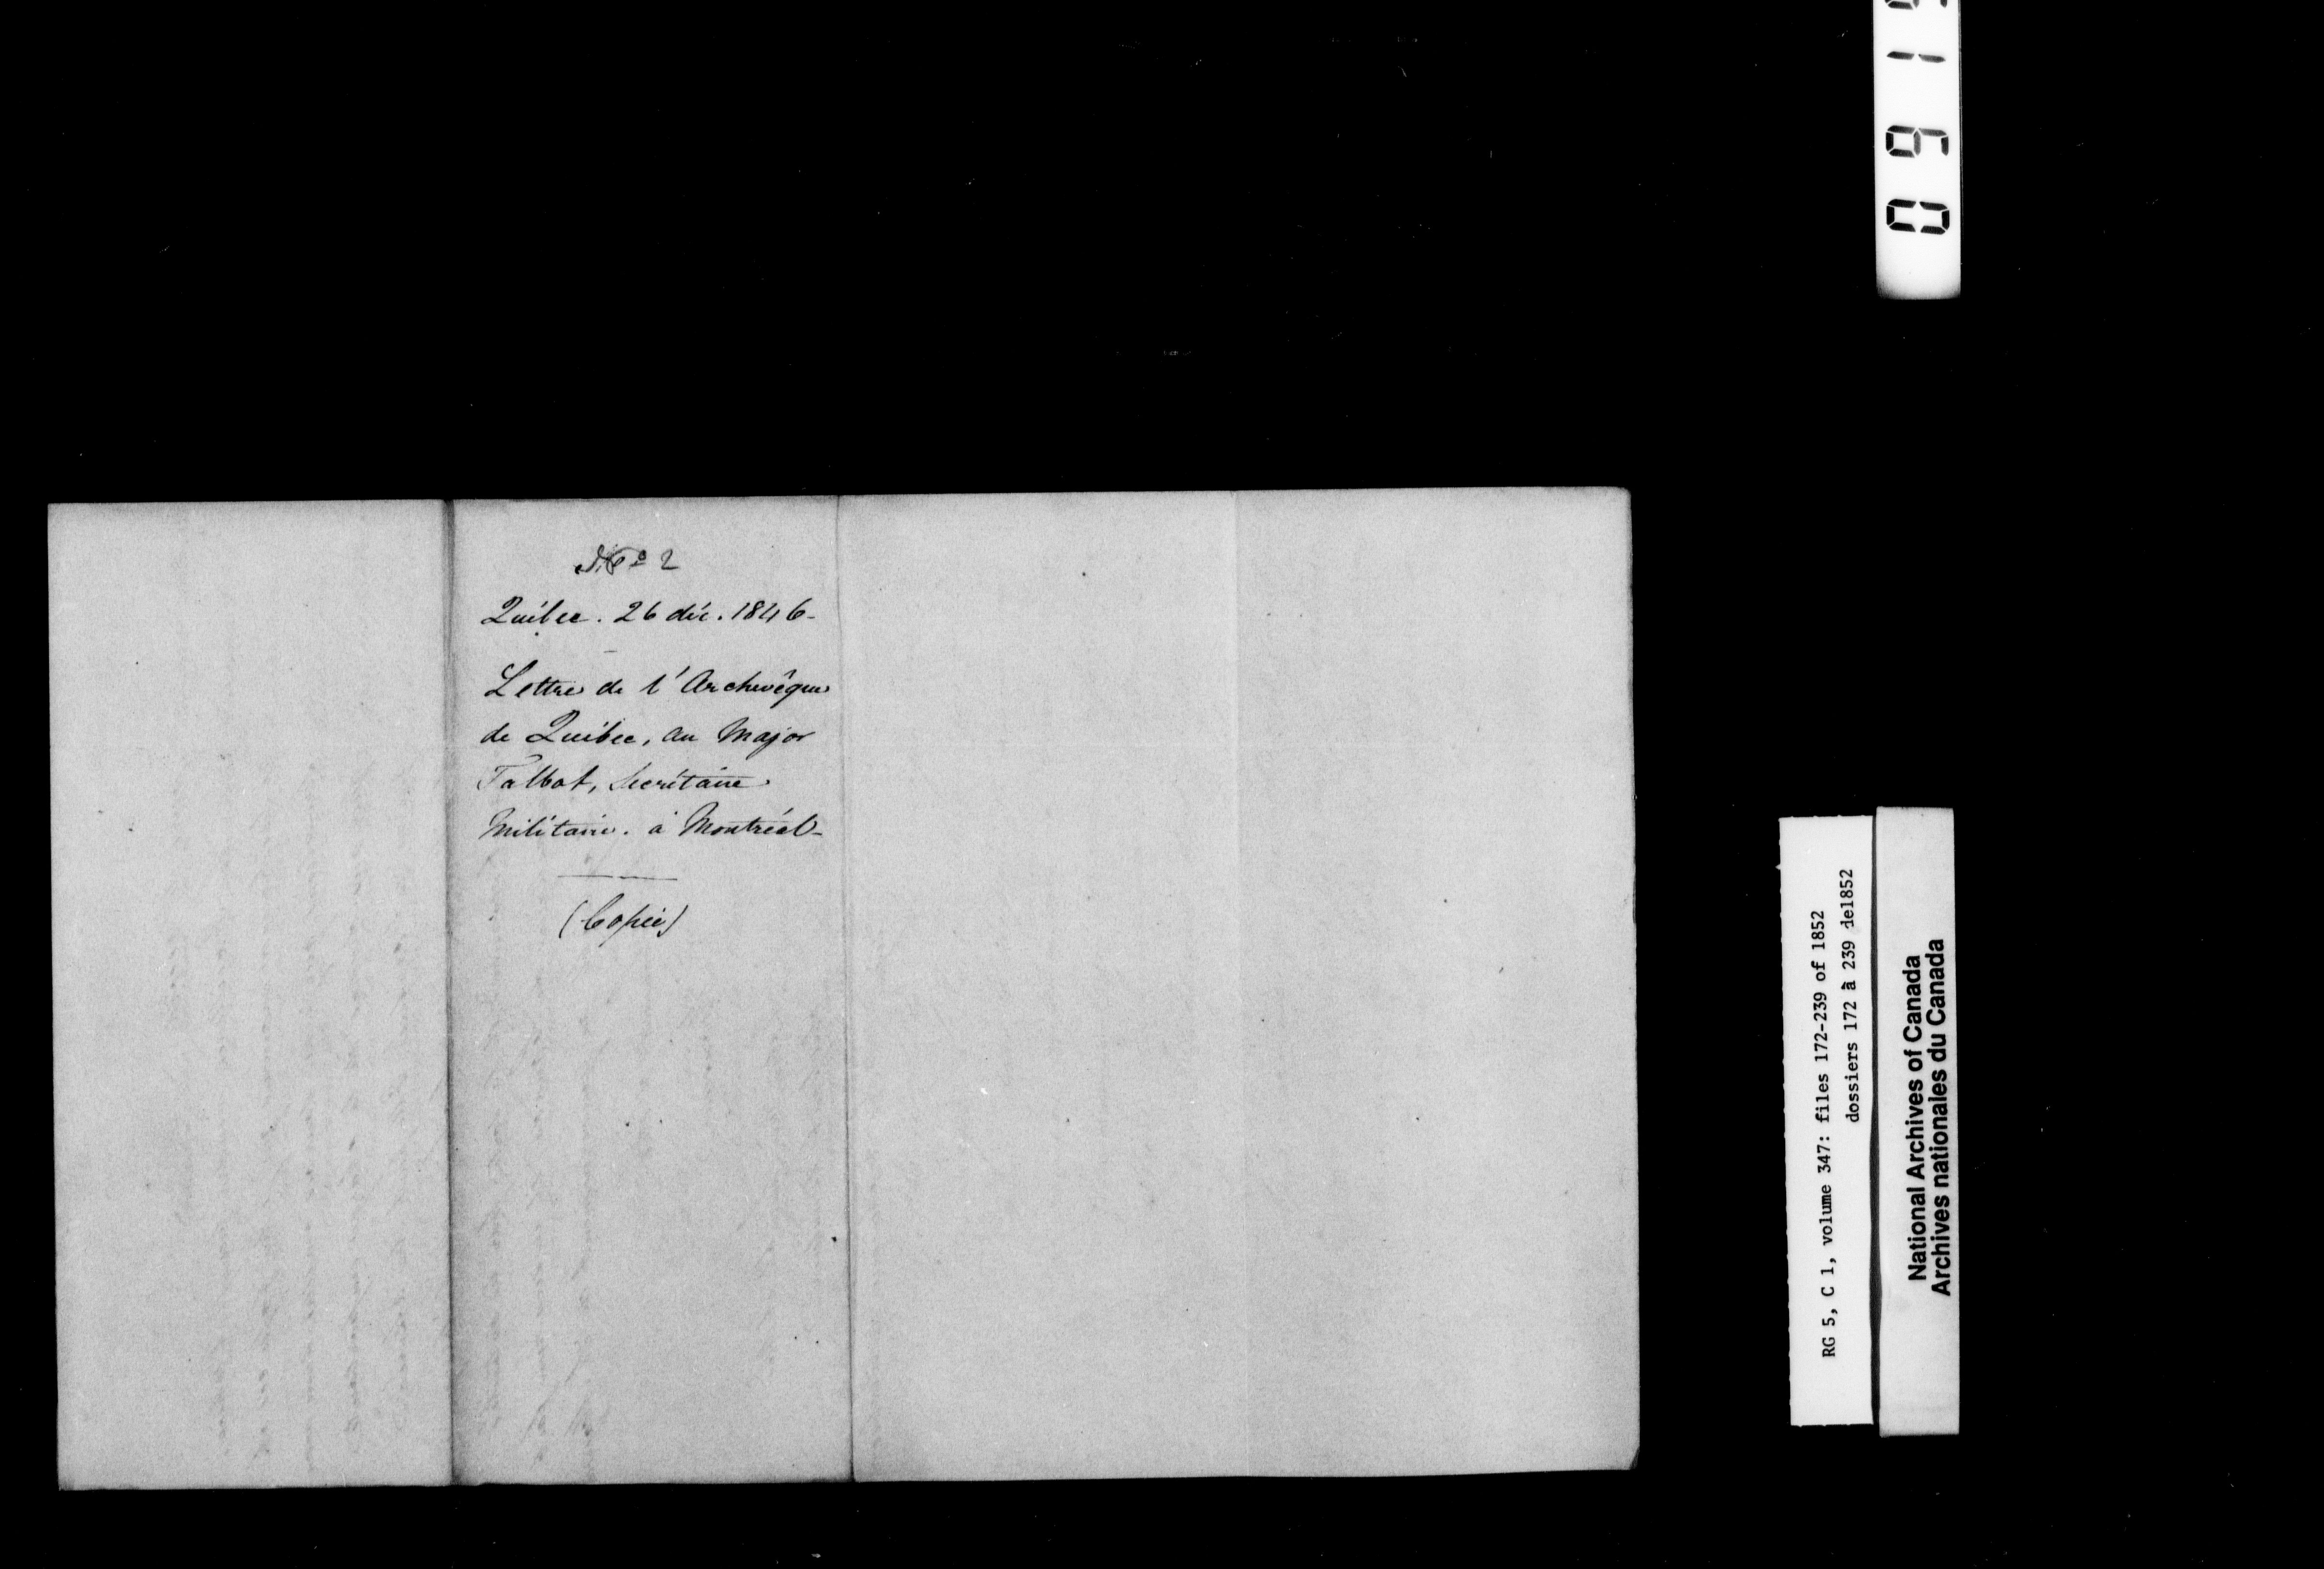 No 2
Québec. 26 déc. 1846-
Lettre de l'Archevêque
de Québec, au Major
Talbot, Secrétaire
Militaire. à Montréal-
(Copie)
0915
RG 5, C 1, volume 347: files 172-239 of 1852
dossiers 172 à 239 de1852
National Archives of Canada
Archives nationales du Canada